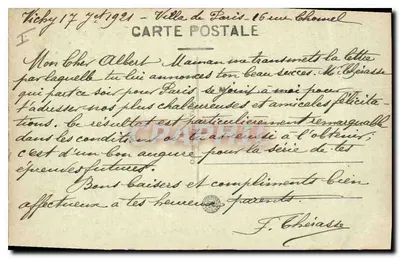 Vichy 17 Jet 1921 - Ville de Paris - 16 rue Chomel
CARTE POSTALE
I
Mon Cher Albert Maman me transmets la lettre
par laquelle tu lui annonces ton beau succès. M. Thérasse
qui part ce soir pour Paris se joint à moi pour
t'adresser nos plus chaleureuses et amicales félicita-
tions. Ce résultat est particulièrement remarquable
dans les conditions où tu à l'obtenir
c'est d'un bon augure pour la série de tes
épreuves futures.
Bons baisers et compliments bien
affectueux à tes heureux parents.
F. Thérasse